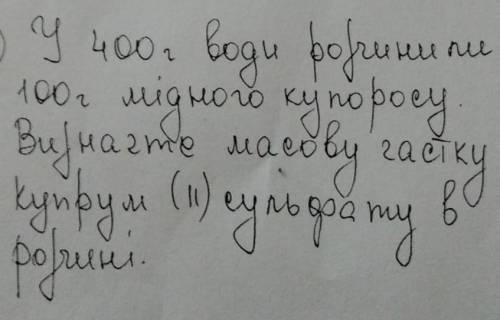 ) У 400г води розчинили
100г мідного купоросу.
Визначте масову частку
купрум (II) сульфату в
розчині.